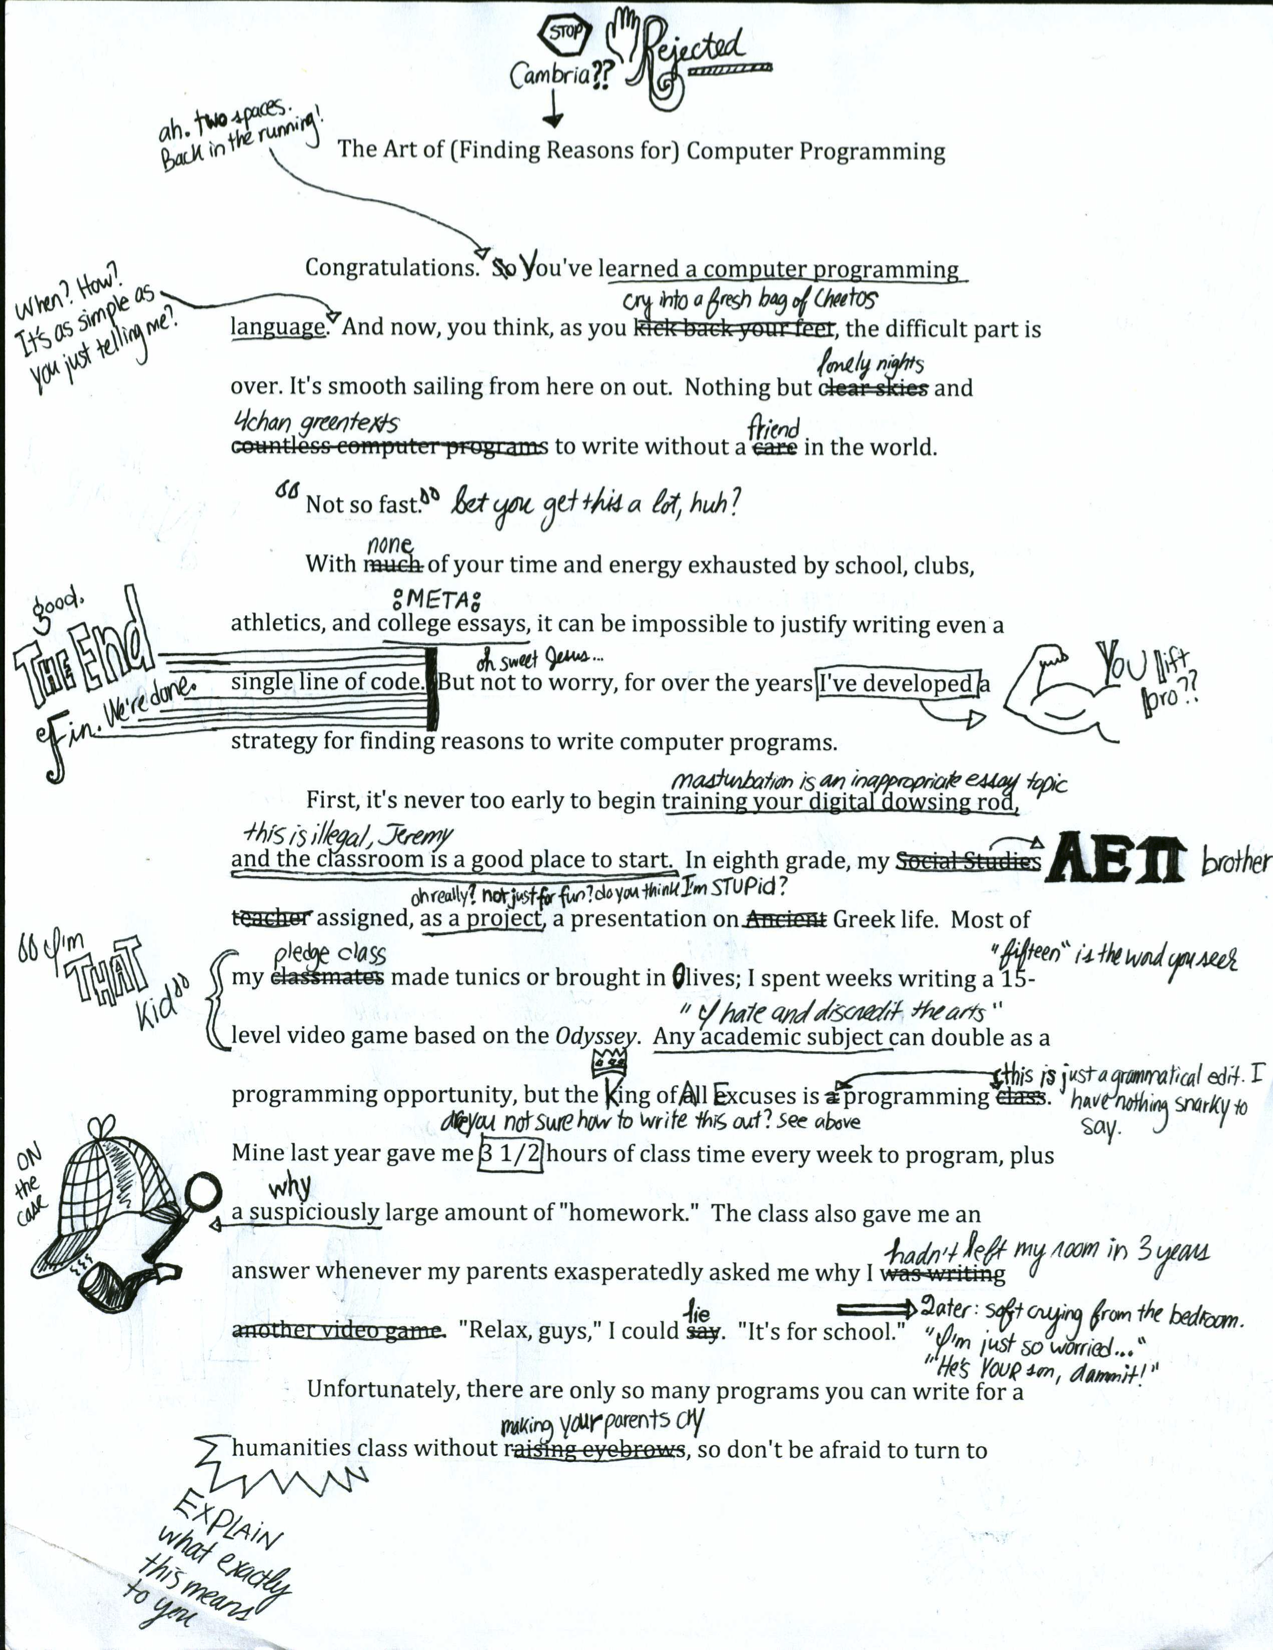 STOP
Rejected
Cambria??
ah. two spaces.
Back in the running!
The Art of (Finding Reasons for) Computer Programming
Congratulations. So You've learned a computer programming
When? How?
It's as simple as
you just telling me?
cry into a fresh bag of Cheetos
language. And now, you think, as you kick back your feet, the difficult part is
lonely nights
over. It's smooth sailing from here on out. Nothing but clear skies and
4chan greentexts
friend
countless computer programs to write without a care in the world.
"Not so fast." bet you get this a lot, huh?
none
With much of your time and energy exhausted by school, clubs,
META
athletics, and college essays, it can be impossible to justify writing even a
good.
THE End
Fin. We're done.
oh sweet Jesus...
single line of code. But not to worry, for over the years I've developed a
You lift
bro??
strategy for finding reasons to write computer programs.
masturbation is an inappropriate essay topic
First, it's never too early to begin training your digital dowsing rod,
this is illegal, Jeremy
and the classroom is a good place to start. In eighth grade, my Social Studies ΑΕΠ brother
oh really? not just for fun? do you think I'm STUPid?
teacher assigned, as a project, a presentation on Ancient Greek life. Most of
"I'm
THAT
Kid"
pledge class
"fifteen" is the word you seek
my classmates made tunics or brought in Olives; I spent weeks writing a 15-
"I hate and discredit the arts"
level video game based on the Odyssey. Any academic subject can double as a
programming opportunity, but the King of All Excuses is a programming class.
this is just a grammatical edit. I
have nothing snarky to
say.
are you not sure how to write this out? see above
Mine last year gave me 3 1/2 hours of class time every week to program, plus
ON
the
case
why
a suspiciously large amount of "homework." The class also gave me an
hadn't left my room in 3 years
answer whenever my parents exasperatedly asked me why I was writing
lie
another video game. "Relax, guys," I could say. "It's for school."
Later: soft crying from the bedroom.
"I'm just so worried..."
"He's YOUR son, dammit!"
Unfortunately, there are only so many programs you can write for a
making your parents cry
humanities class without raising eyebrows, so don't be afraid to turn to
EXPLAIN
what exactly
this means
to you